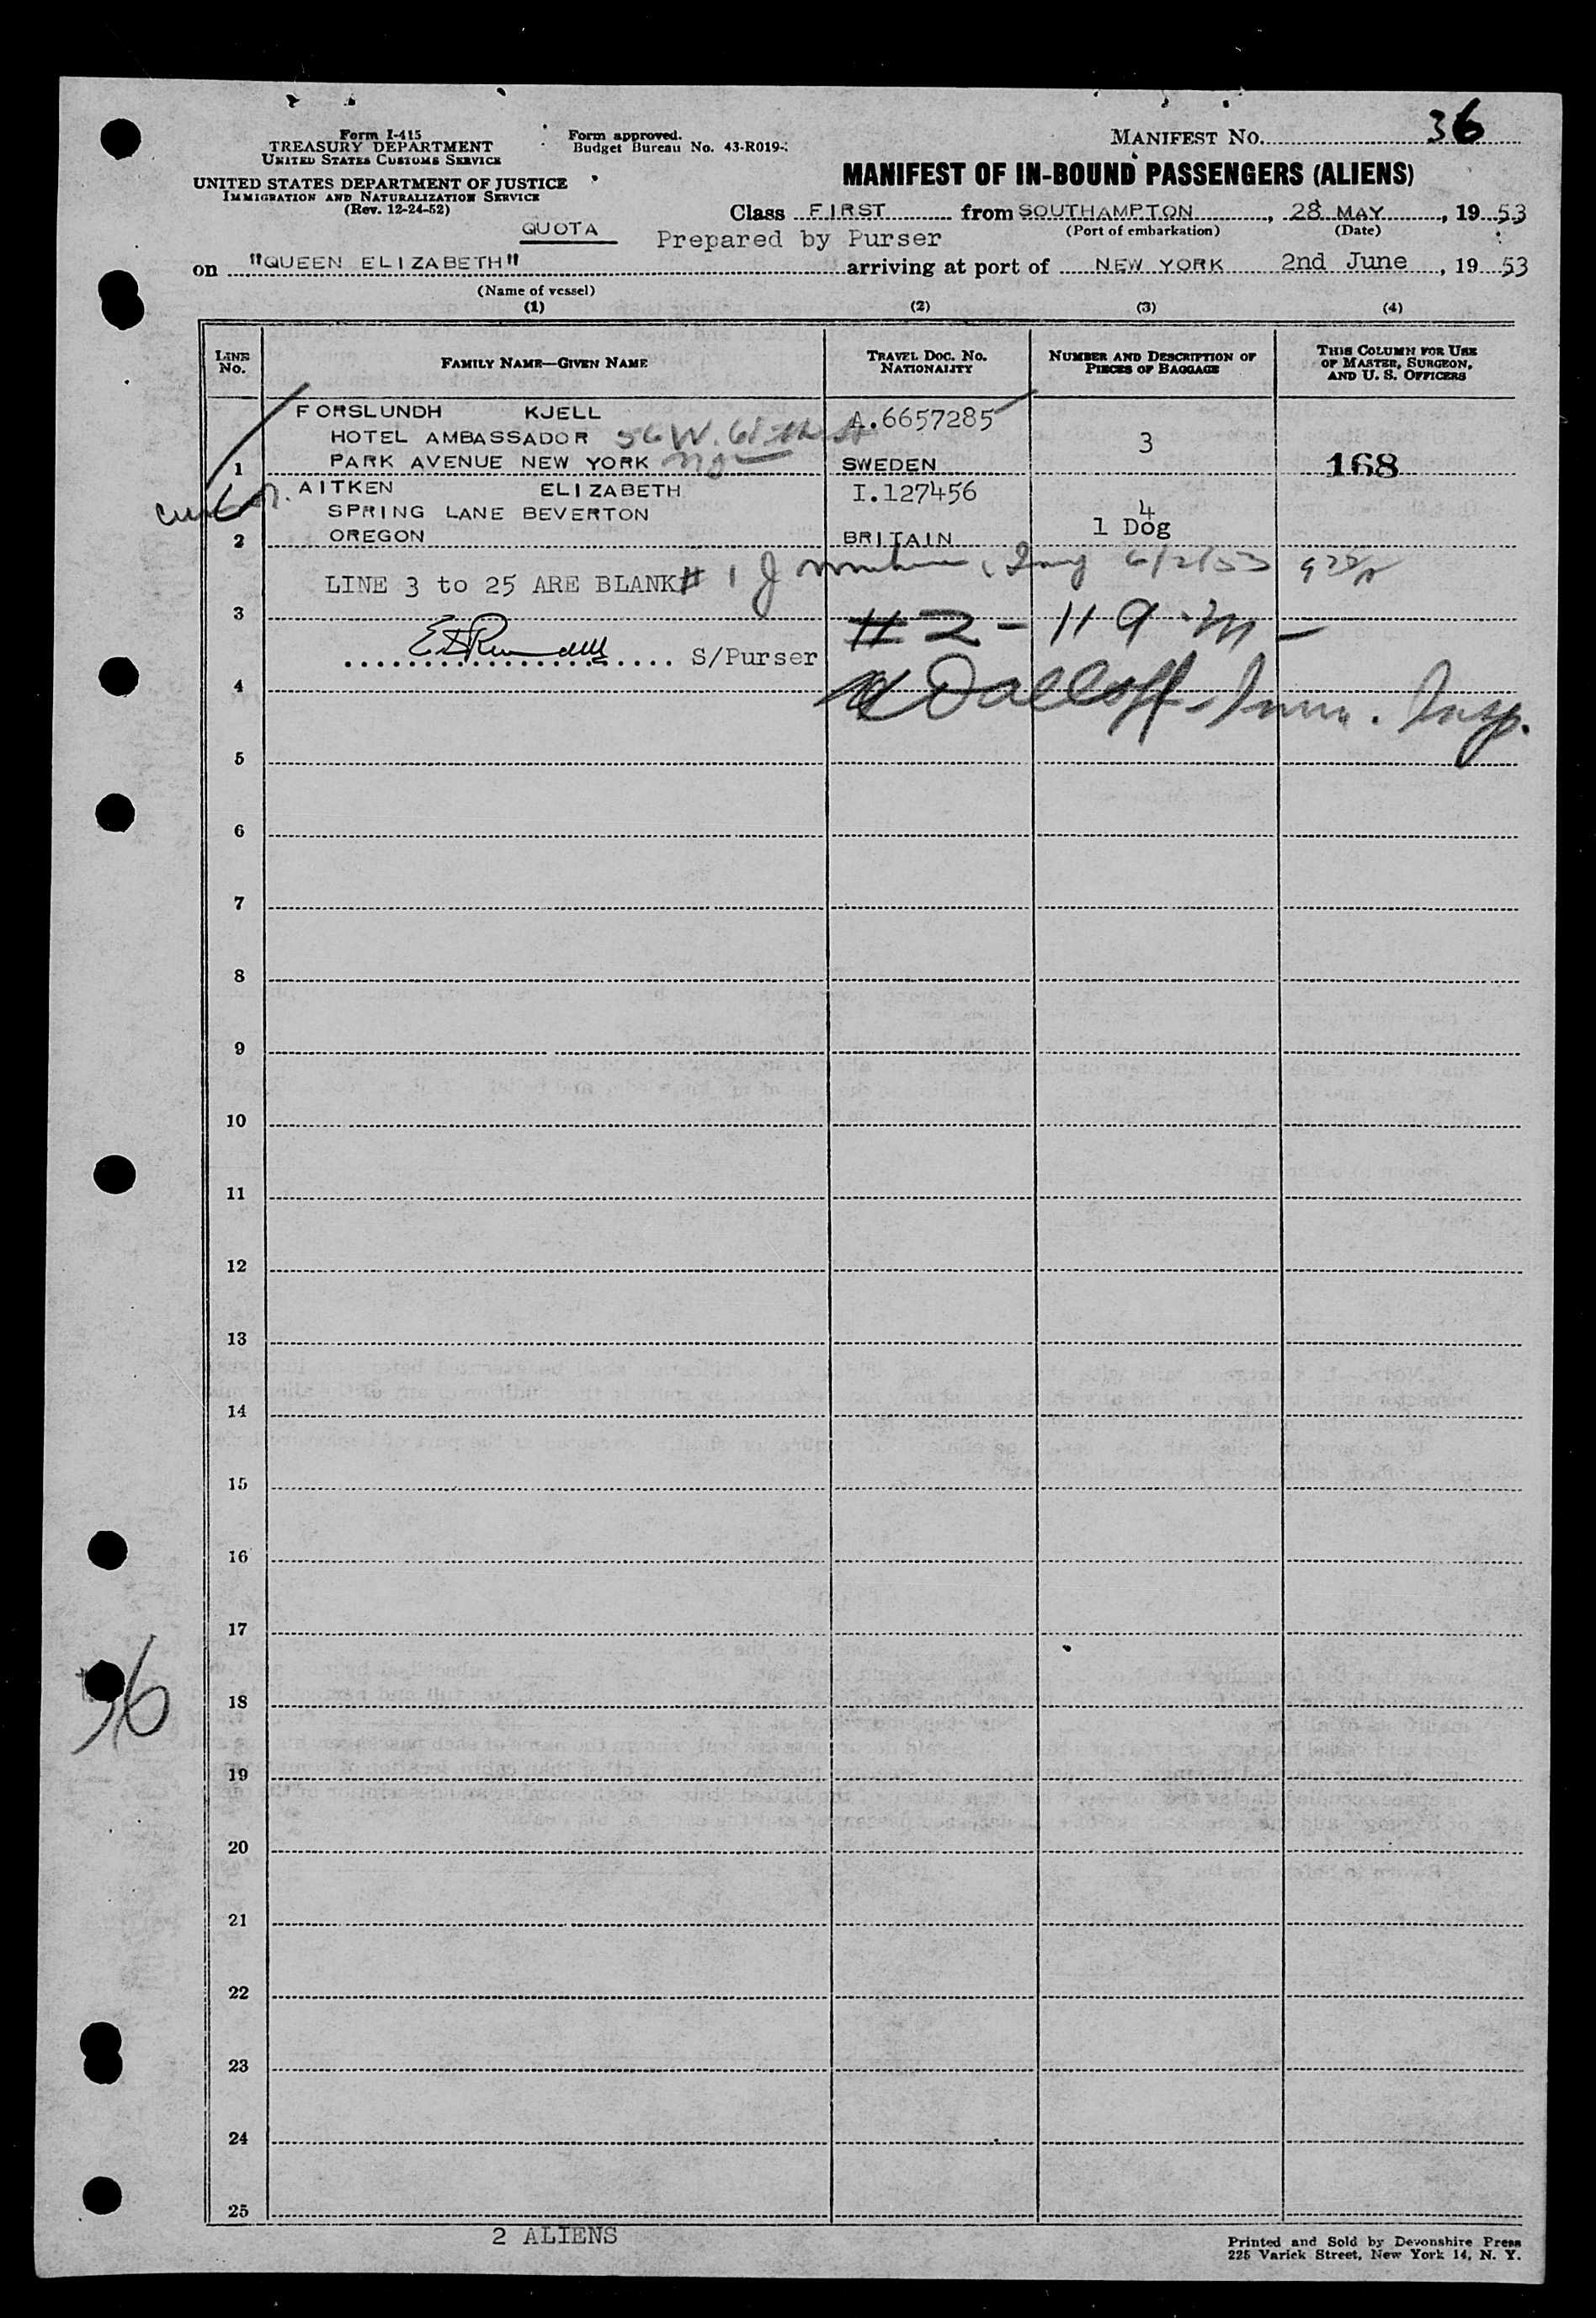 Form I-415
TREASURY DEPARTMENT
UNITED STATES CUSTOMS SERVICE
UNITED STATES DEPARTMENT OF JUSTICE
IMMIGRATION AND NATURALIZATION SERVICE
(Rev. 12-24-52)
Form approved.
Budget Bureau No. 43-R019-
MANIFEST NO. 36
MANIFEST OF IN-BOUND PASSENGERS (ALIENS)
Class FIRST from SOUTHAMPTON, 28 MAY, 19 53
(Port of embarkation) (Date)
QUOTA
Prepared by Purser
on "QUEEN ELIZABETH" arriving at port of NEW YORK 2nd June, 19 53
(Name of vessel)
(1) (2) (3) (4)
LINE NO. FAMILY NAME—GIVEN NAME TRAVEL DOC. NO. NATIONALITY NUMBER AND DESCRIPTION OF PIECES OF BAGGAGE THIS COLUMN FOR USE OF MASTER, SURGEON, AND U. S. OFFICERS
FORSLUNDH KJELL A.6657285
HOTEL AMBASSADOR 56 W. 3
1 PARK AVENUE NEW YORK SWEDEN 168
AITKEN ELIZABETH I.127456
SPRING LANE BEVERTON 4
2 OREGON BRITAIN 1 Dog
LINE 3 to 25 ARE BLANK # 1 6/2/53
3 # 2 - 11 9
S/Purser
4 Imm. Insp.
5
6
7
8
9
10
11
12
13
14
15
16
17
36
18
19
20
21
22
23
24
25
2 ALIENS
Printed and Sold by Devonshire Press
225 Varick Street, New York 14, N. Y.